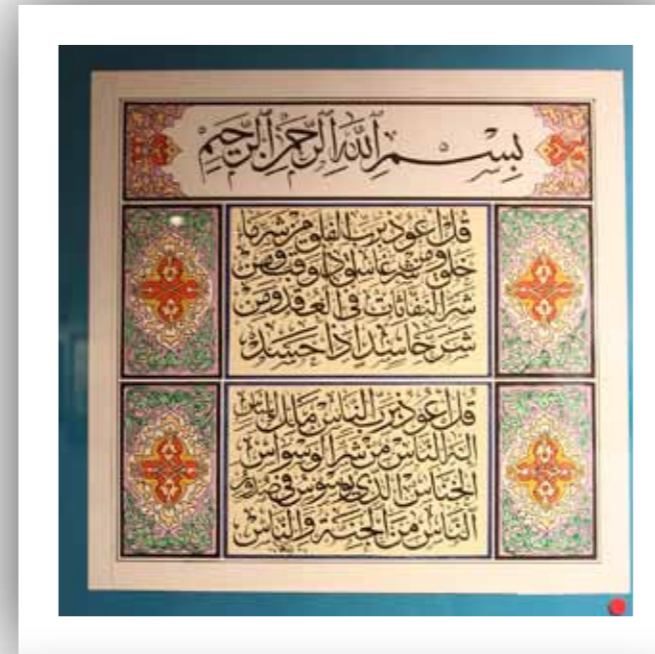 بِسْمِ ٱللَّهِ ٱلرَّحْمَٰنِ ٱلرَّحِيمِ
قل اعوذ برب الفلق من شر ما
خلق و من شر غاسق اذا وقب و من
شر النفاثات فی العقد و من
شر حاسد اذا حسد
قل اعوذ برب الناس ملك الناس
اله الناس من شر الوسواس
الخناس الذی یوسوس فی صدور
الناس من الجنة و الناس